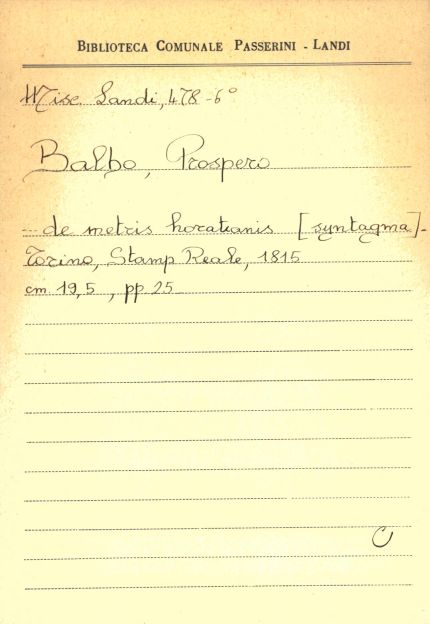 BIBLIOTECA COMUNALE PASSERINI - LANDI
Misc. Landi, 478-6°
Balbo, Prospero
... de metris horatianis [syntagma].
Torino, Stamp Reale, 1815
cm 19,5, pp. 25
C